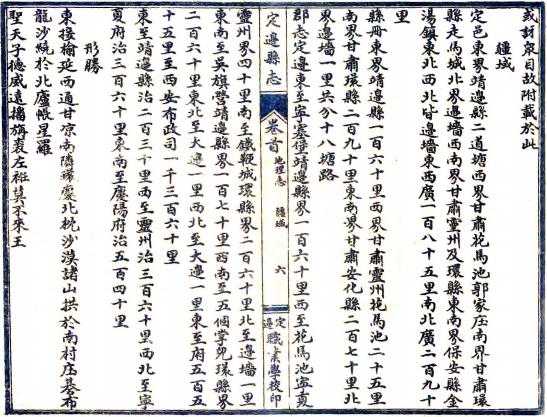 或訪眾目故附載於此
疆域
定邑東界靖邊縣二道塘西界甘肅花馬池郭家庄南界甘肅環
縣走馬城北界邊墻西南界甘肅靈州及環縣東南界保安縣金
湯鎮東北西北皆邊墻東西廣一百八十五里南北廣二百九十
里
縣册東靖邊縣一百六十里西界甘肅靈州花馬池二十五里
南界甘肅環縣二百九十里東南界甘肅安化縣二百七十里北
界邊墻一里共分十八塘路
郡志定邊東至寧塞堡靖邊縣界一百六十里西至花馬池寧夏
定邊縣志
卷首
地理志
疆域
六
定邊職業學校印
靈州界四十里南至鐵鞭城環縣界二百六十里北至邊墻一里
東南至吳旗營靖邊縣界一百七十里西南至五個掌兒環縣界
二百六十里東北至大邊一里西北至大邊一里東至府五百五
十五里至西安布政司一千三百六十里
東至靖邊縣治二百三十里西至靈州治三百六十里西北至寧
夏府治三百六十里東南至慶陽府治五百四十里
形勝
東接榆延西通甘涼南隣環慶北枕沙漠諸山拱於南村庄碁布
龍沙繞於北廬帳星羅
聖天子德威遠播旃裘左袵莫不來王